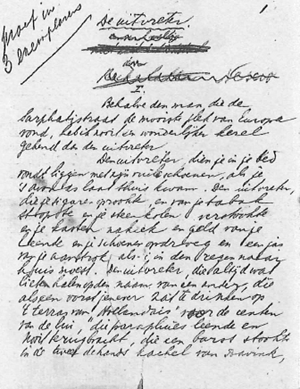 proef in
3 exemplaren
1
De uitvreter.
door
Nescio
I.
Behalve den man, die de
Sarphatistraat de mooiste plek van Europa
vond, heb ik nooit een wonderlijker kerel
gekend dan den uitvreter.
Den uitvreter, dien je in je bed
vondt liggen met zijn vuile schoenen, als
je 's avonds laat thuis kwam. Den uitvreter,
die je sigaren oprookte, en van je tabak
stopte en je steenkolen verstookte
en je kasten nakeek en geld van je
leende en je schoenen opdroeg en een jas
van je aantrok, als-i in den regen naar
huis moest. Den uitvreter, die altijd wat
liet halen op den naam van een ander, die
als een vorst jenever zat te drinken op
't terras van "Hollandais" voor de centen
van de lui, die parapluies leende en
nooit terugbracht, die een barst stookte
in de tweedehands kachel van Bavink,